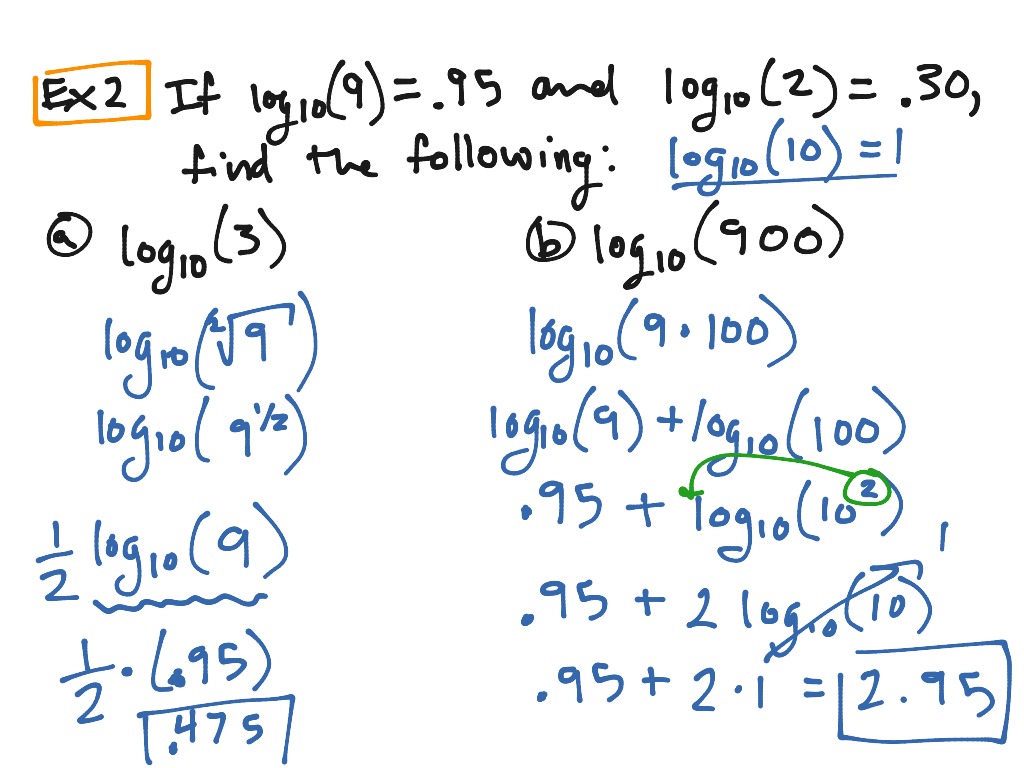 Ex2 If log₁₀(9) = .95 and log₁₀(2) = .30,
find the following: log₁₀(10) = 1
ⓐ log₁₀(3)
log₁₀(²√9)
log₁₀(9^1/2)
1/2 log₁₀(9)
1/2 · (.95)
.475
ⓑ log₁₀(900)
log₁₀(9 · 100)
log₁₀(9) + log₁₀(100)
.95 + log₁₀(10²)
.95 + 2 log₁₀(10) 1
.95 + 2 · 1 = 2.95